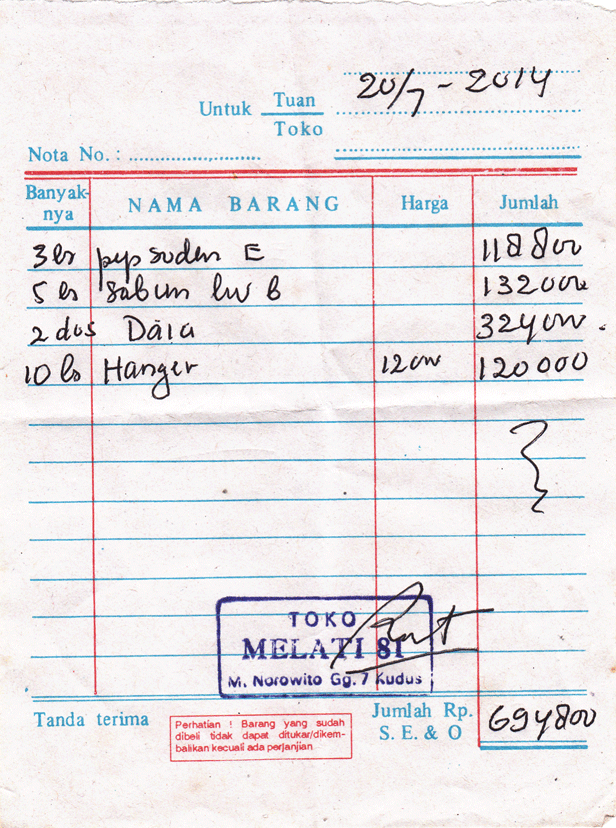 20/7 - 2014
Untuk Tuan
Toko
Nota No. : ........................
Banyak-nya NAMA BARANG Harga Jumlah
3 ls E 118800
5 ls Sabun B 132000
2 dos Daia 324000
10 ls Hanger 12000 120000
TOKO
MELATI 81
M. Norowito Gg. 7 Kudus
Tanda terima
Perhatian ! Barang yang sudah
dibeli tidak dapat ditukar/dikem-
balikan kecuali ada perjanjian
Jumlah Rp. 694800
S. E. & O